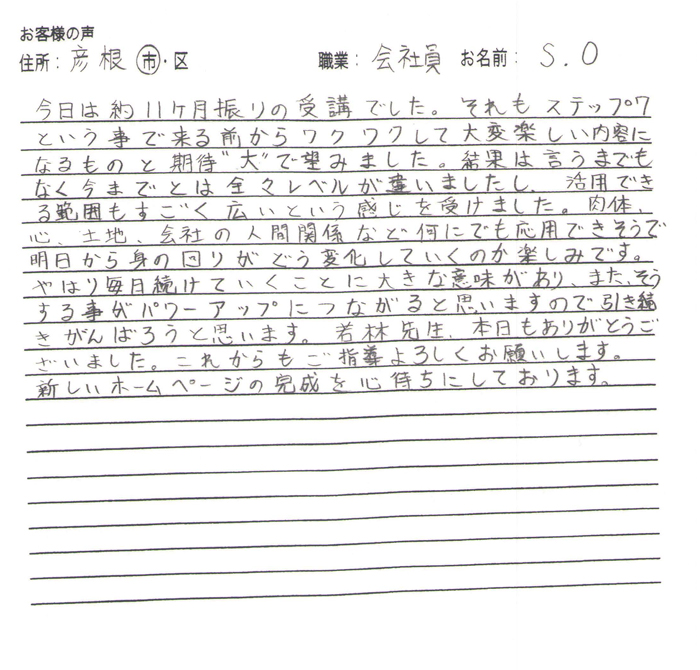 お客様の声
住所：彦根 市・区 職業：会社員 お名前：S.O
今日は約11ケ月振りの受講でした。それもステップ7
という事で来る前からワクワクして大変楽しい内容に
なるものと期待"大"で望みました。結果は言うまでも
なく今までとは全々レベルが違いましたし、活用でき
る範囲もすごく広いという感じを受けました。肉体、
心、土地、会社の人間関係など何にでも応用できそうで
明日から身の回りがどう変化していくのか楽しみです。
やはり毎日続けていくことに大きな意味があり、また、そう
する事がパワーアップにつながると思いますので引き続
きがんばろうと思います。若林先生、本日もありがとうご
ざいました。これからもご指導よろしくお願いします。
新しいホームページの完成を心待ちにしております。